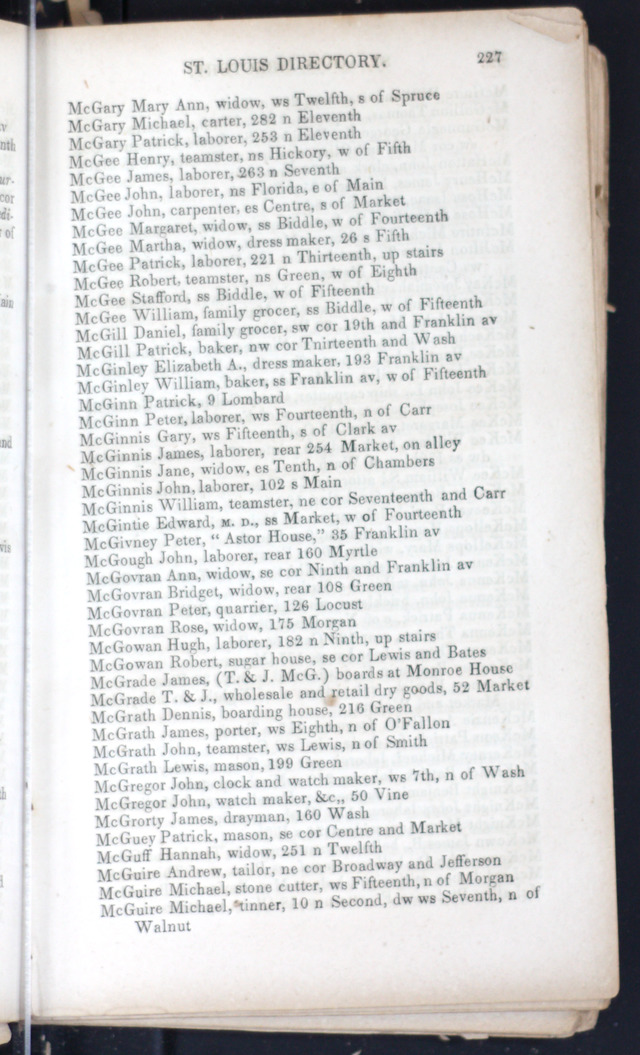 ST. LOUIS DIRECTORY. 227
McGary Mary Ann, widow, ws Twelfth, s of Spruce
McGary Michael, carter, 282 n Eleventh
McGary Patrick, laborer, 253 n Eleventh
McGee Henry, teamster, ns Hickory, w of Fifth
McGee James, laborer, 263 n Seventh
McGee John, laborer, ns Florida, e of Main
McGee John, carpenter, es Centre, s of Market
McGee Margaret, widow, ss Biddle, w of Fourteenth
McGee Martha, widow, dress maker, 26 s Fifth
McGee Patrick, laborer, 221 n Thirteenth, up stairs
McGee Robert, teamster, ns Green, w of Eighth
McGee Stafford, ss Biddle, w of Fifteenth
McGee William, family grocer, ss Biddle, w of Fifteenth
McGill Daniel, family grocer, sw cor 19th and Franklin av
McGill Patrick, baker, nw cor Tnirteenth and Wash
McGinley Elizabeth A., dress maker, 193 Franklin av
McGinley William, baker, ss Franklin av, w of Fifteenth
McGinn Patrick, 9 Lombard
McGinn Peter, laborer, ws Fourteenth, n of Carr
McGinnis Gary, ws Fifteenth, s of Clark av
McGinnis James, laborer, rear 254 Market, on alley
McGinnis Jane, widow, es Tenth, n of Chambers
McGinnis John, laborer, 102 s Main
McGinnis William, teamster, ne cor Seventeenth and Carr
McGintie Edward, M. D., ss Market, w of Fourteenth
McGivney Peter, “ Astor House,” 35 Franklin av
McGough John, laborer, rear 160 Myrtle
McGovran Ann, widow, se cor Ninth and Franklin av
McGovran Bridget, widow, rear 108 Green
McGovran Peter, quarrier, 126 Locust
McGovran Rose, widow, 175 Morgan
McGowan Hugh, laborer, 182 n Ninth, up stairs
McGowan Robert, sugar house, se cor Lewis and Bates
McGrade James, (T. & J. McG.) boards at Monroe House
McGrade T. & J., wholesale and retail dry goods, 52 Market
McGrath Dennis, boarding house, 216 Green
McGrath James, porter, ws Eighth, n of O’Fallon
McGrath John, teamster, ws Lewis, n of Smith
McGrath Lewis, mason, 199 Green
McGregor John, clock and watch maker, ws 7th, n of Wash
McGregor John, watch maker, &c,, 50 Vine
McGrorty James, drayman, 160 Wash
McGuey Patrick, mason, se cor Centre and Market
McGuff Hannah, widow, 251 n Twelfth
McGuire Andrew, tailor, ne cor Broadway and Jefferson
McGuire Michael, stone cutter, ws Fifteenth, n of Morgan
McGuire Michael, tinner, 10 n Second, dw ws Seventh, n of
Walnut